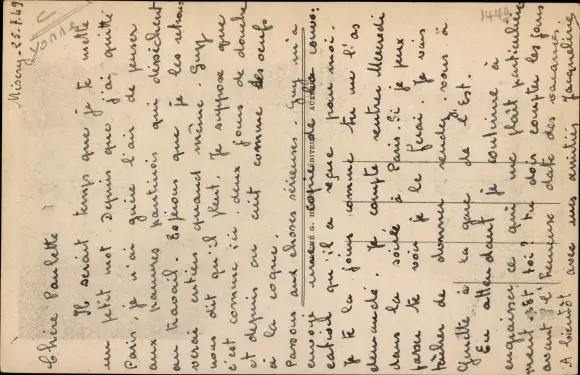 Misery 25.7.49
YONNE
1448
Chère Paulette
Il serait temps que je te mette
un ptit mot. Depuis que j'ai quitté
Paris je n'ai guère l'air de penser
aux pauvres pantinois qui dessèchent
au travail. Espérons que je les retrou-
verai entiers quand même. Guy
nous dit qu'il pleut. Je suppose que
c'est comme ici deux jours de douche
et depuis on cuit comme des oeufs
à la coque.
Passons aux choses sérieuses. Guy m'a
envoyé une copie de la convo-
cation qu'il a reçue pour moi.
Je te la joins comme tu me l'as
demandé. Je compte rentrer Mercredi
dans la soirée à Paris. Si je peux
passer te voir je le ferai. Je vais
tâcher de donner rendez-vous à
Ginette à la gare de l'Est.
En attendant je continue à
engraisser ce qui me plait particulière
ment. Et toi? tu dois compter les jours
avant l'heureuse date des vacances.
A bientôt avec mes amitiés Jacqueline
G. ÉDITRICE